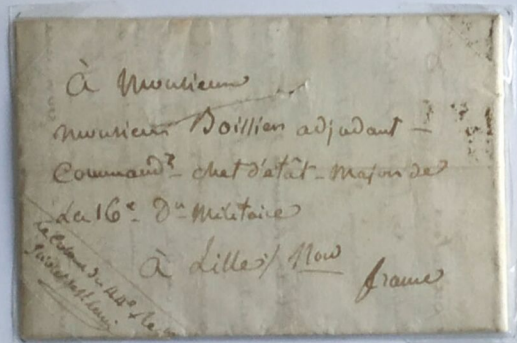 à Monsieur
Monsieur Boissier adjudant -
Command.t - chef d'état - Major de
La 16e - D.n Militaire
à Lille / Nord
france
Le Colonel du 44e